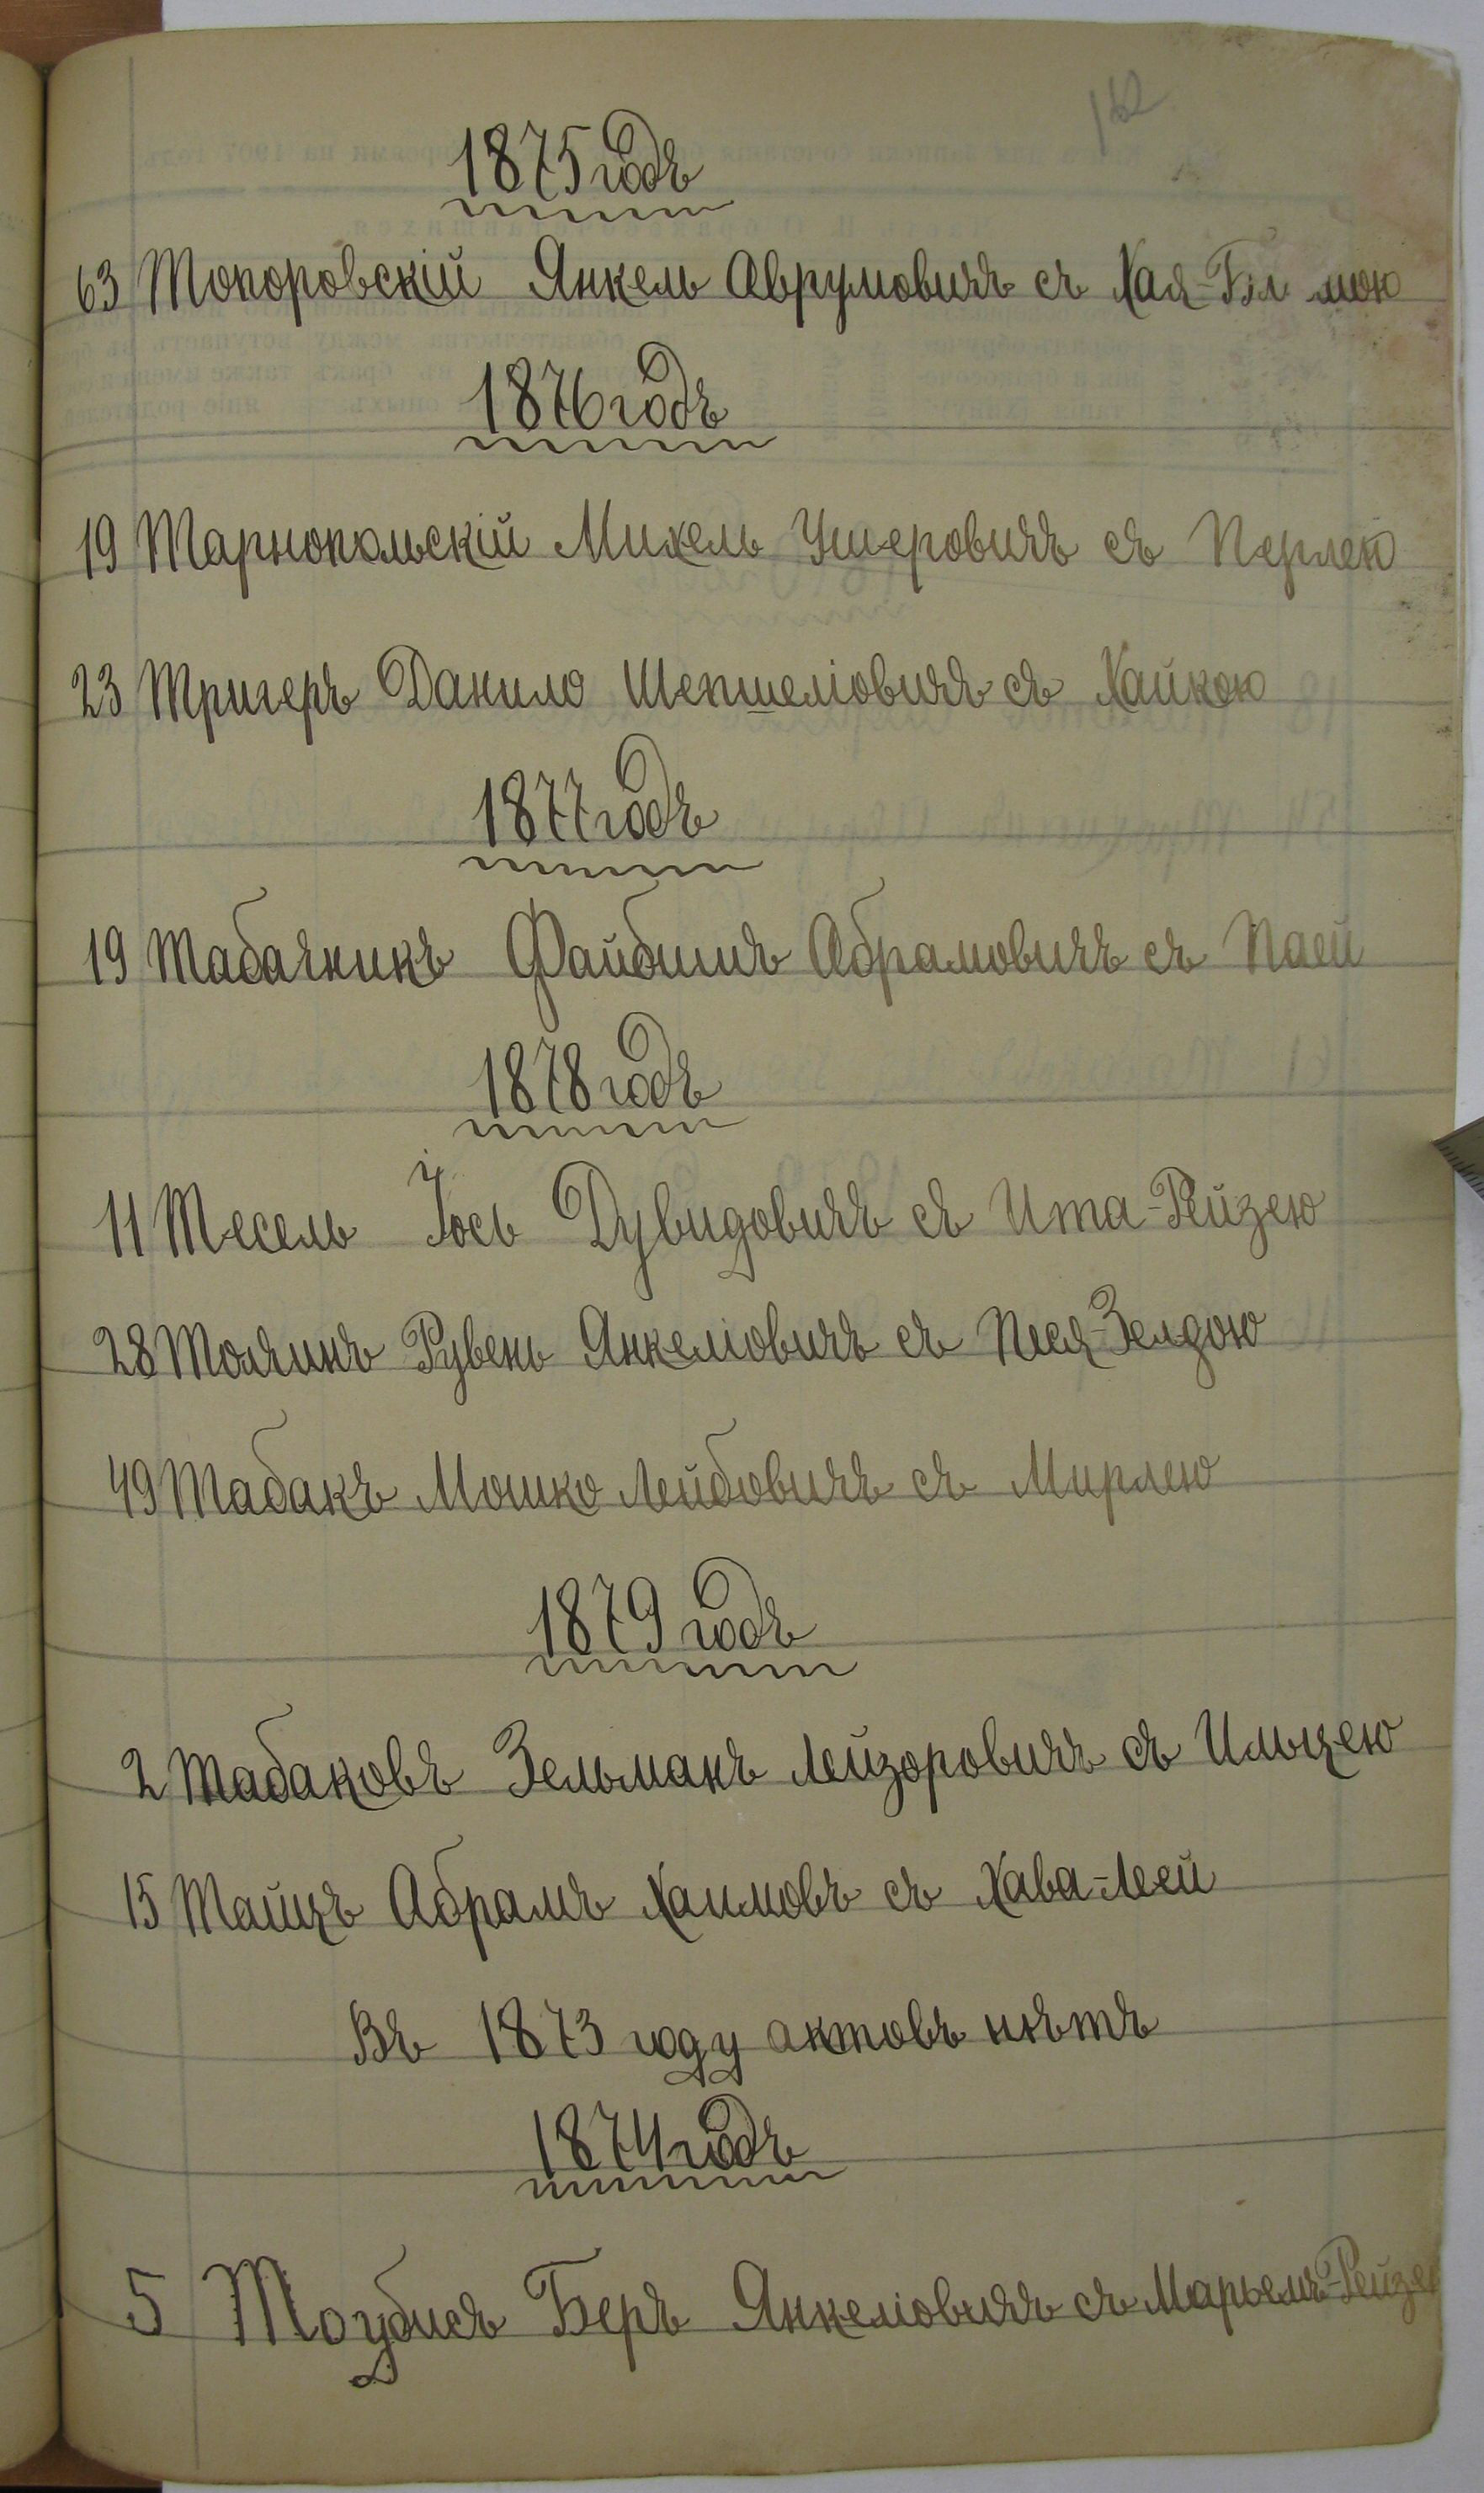 1875 годъ
63 Топоровскій Янкель Аврумовичъ съ Хая-
1876 годъ
19 Тарнопольскій Михель Ушеровичъ съ Перлею
23 Тригеръ Данило Шепшеліовичъ съ Хайкою
1877 годъ
19 Табачникъ Файбишъ Абрамовичъ съ Паей
1878 годъ
11 Тесель Іось Дувидовичъ съ Ита-Рейзею
28 Толчинъ Рувень Янкеліовичъ съ Песя-Зелдою
49 Табакъ Мошко Лейбовичъ съ Мирлею
1879 годъ
2 Табаковъ Зельманъ Лейзоровичъ съ Ильцею
15 Тайцъ Абрамъ Хаимовъ съ Хава-Леей
Въ 1873 году актовъ нѣтъ
1874 годъ
5 Тоубисъ Беръ Янкеліовичъ съ Марьемъ-Рейзею